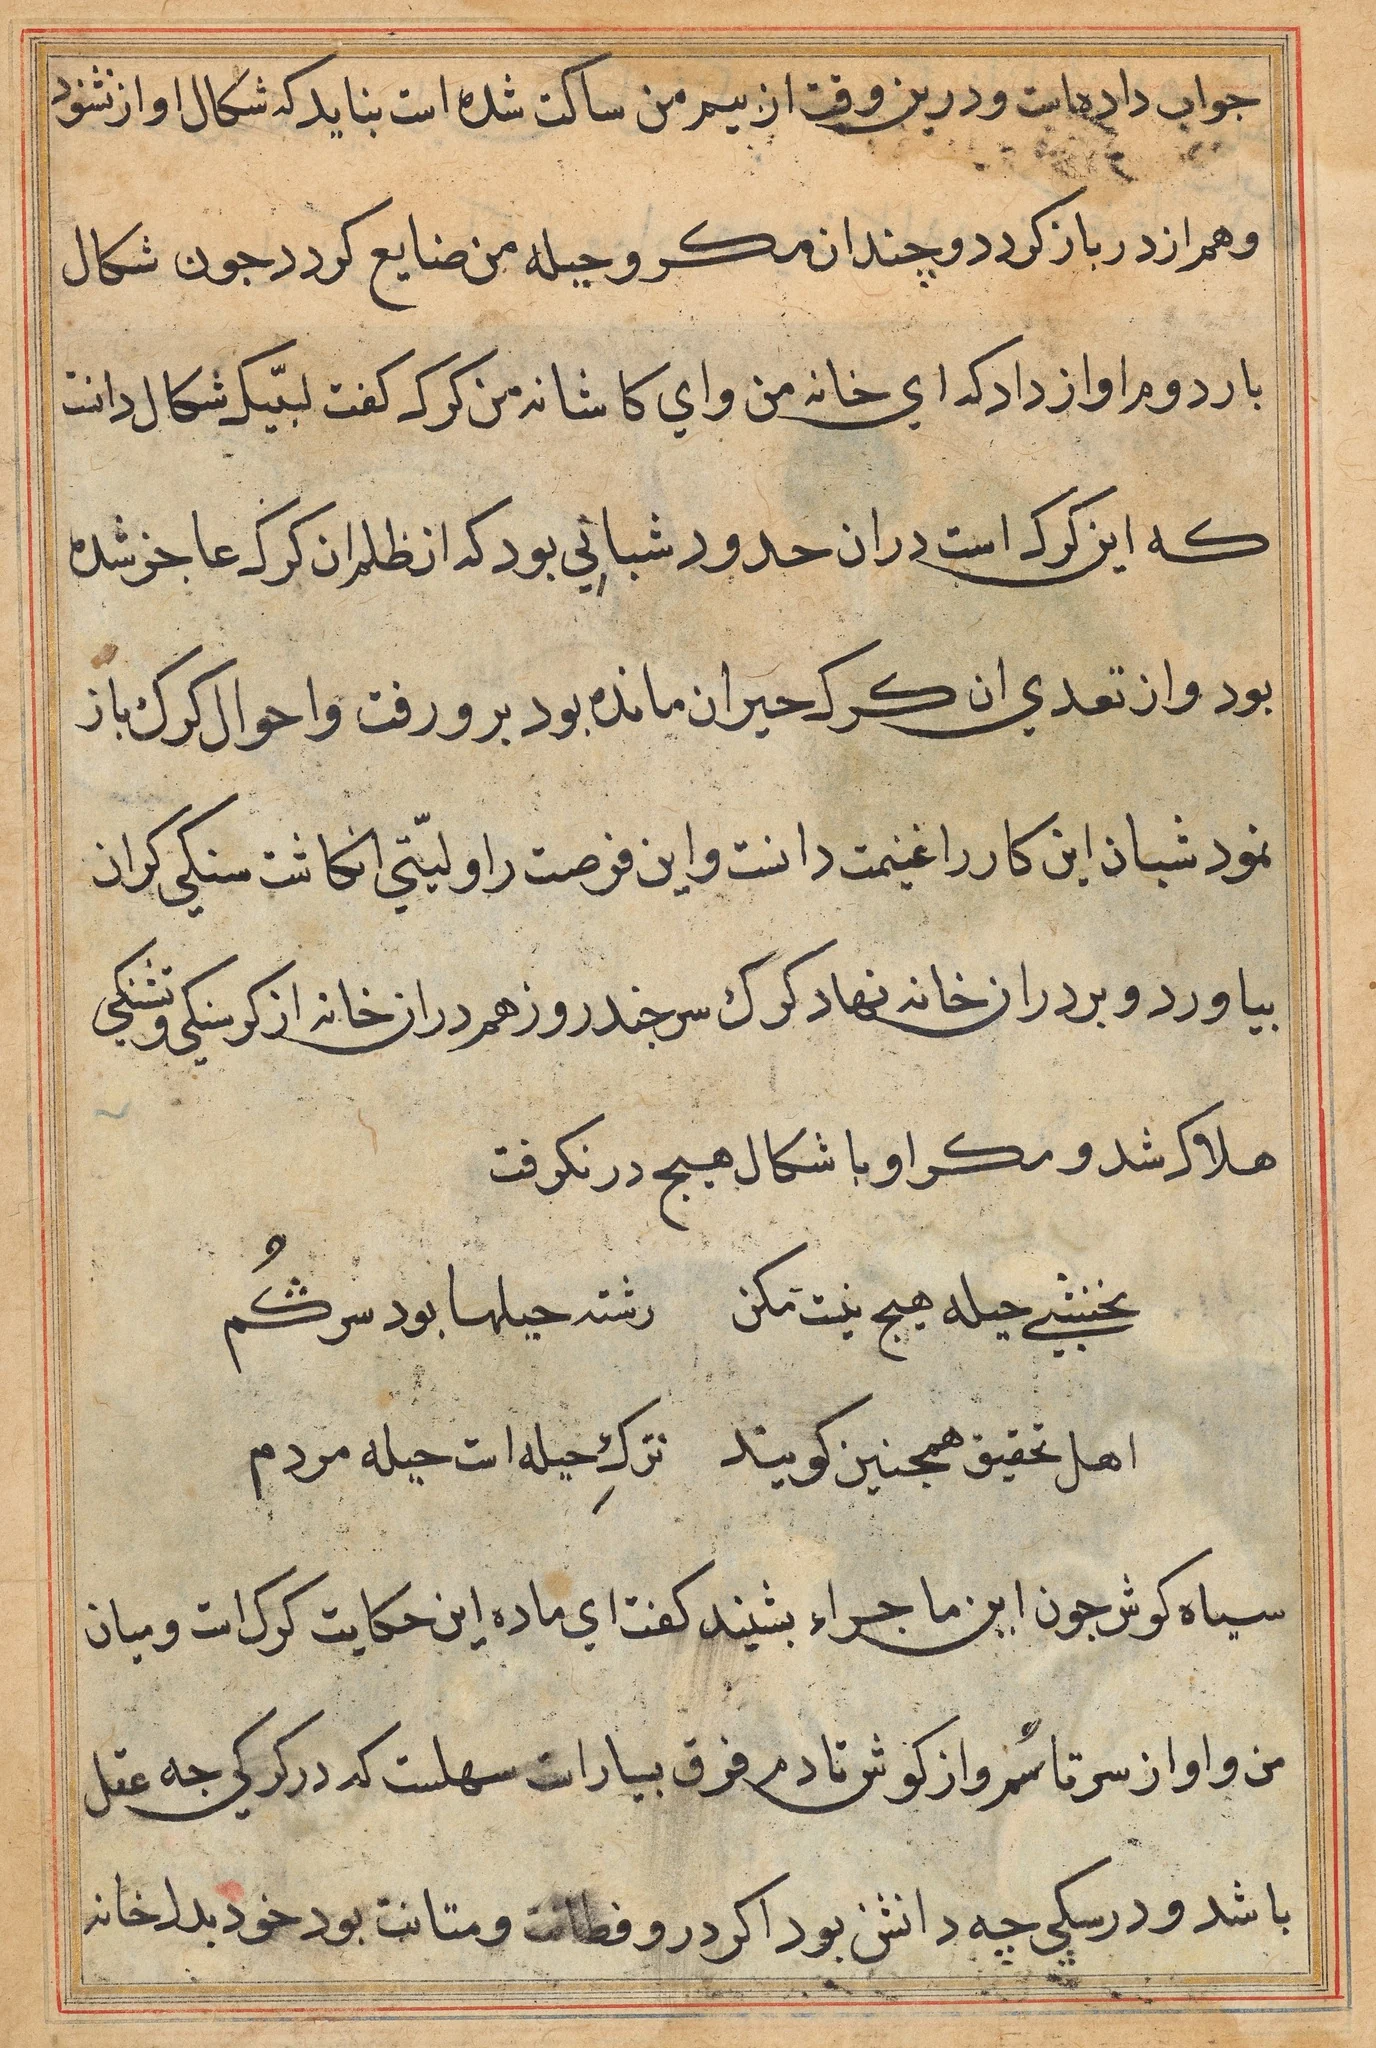 جواب داده است و درین وقت از بیم من ساکت شده است بناید که شکال اواز نشنود
و هم از در باز کردد و چندان مکر و حیله من ضایع کردد جون شکال
بار دوم اواز داد که ای خانه من و ای کاشانه من کرک کفت لبّیک شکال دانست
که این کرک است دران حدود شبانی بود که از ظلم ان کرک عاجز شده
بود و از تعدی ان کرک حیران مانده بود برو رفت و احوال کرک باز
نمود شبان این کار را غنیمت دانست و این فرصت را ولیّتی انکاشت سنکی کران
بیاورد و بر در ان خانه نهاد کرک سر جند روز هم دران خانه از کرسنکی و تشنکی
هلاک شد و مکر او با شکال هیج در نکرفت
نخشبی حیله هیج نیست مکن رشته حیلها بود سرکُم
اهل تحقیق همجنین کویند ترکِ حیله است حیله مردم
سیاه کوش جون این ماجراء بشنید کفت ای ماده این حکایت کرک است و میان
من و او از سر تا سُم و از کوش تا دم فرق بسیار است سهلست که در کرکی جه عقل
باشد و در سکی چه دانش بود اکر درو فطانت و متانت بود خود بدا خانه